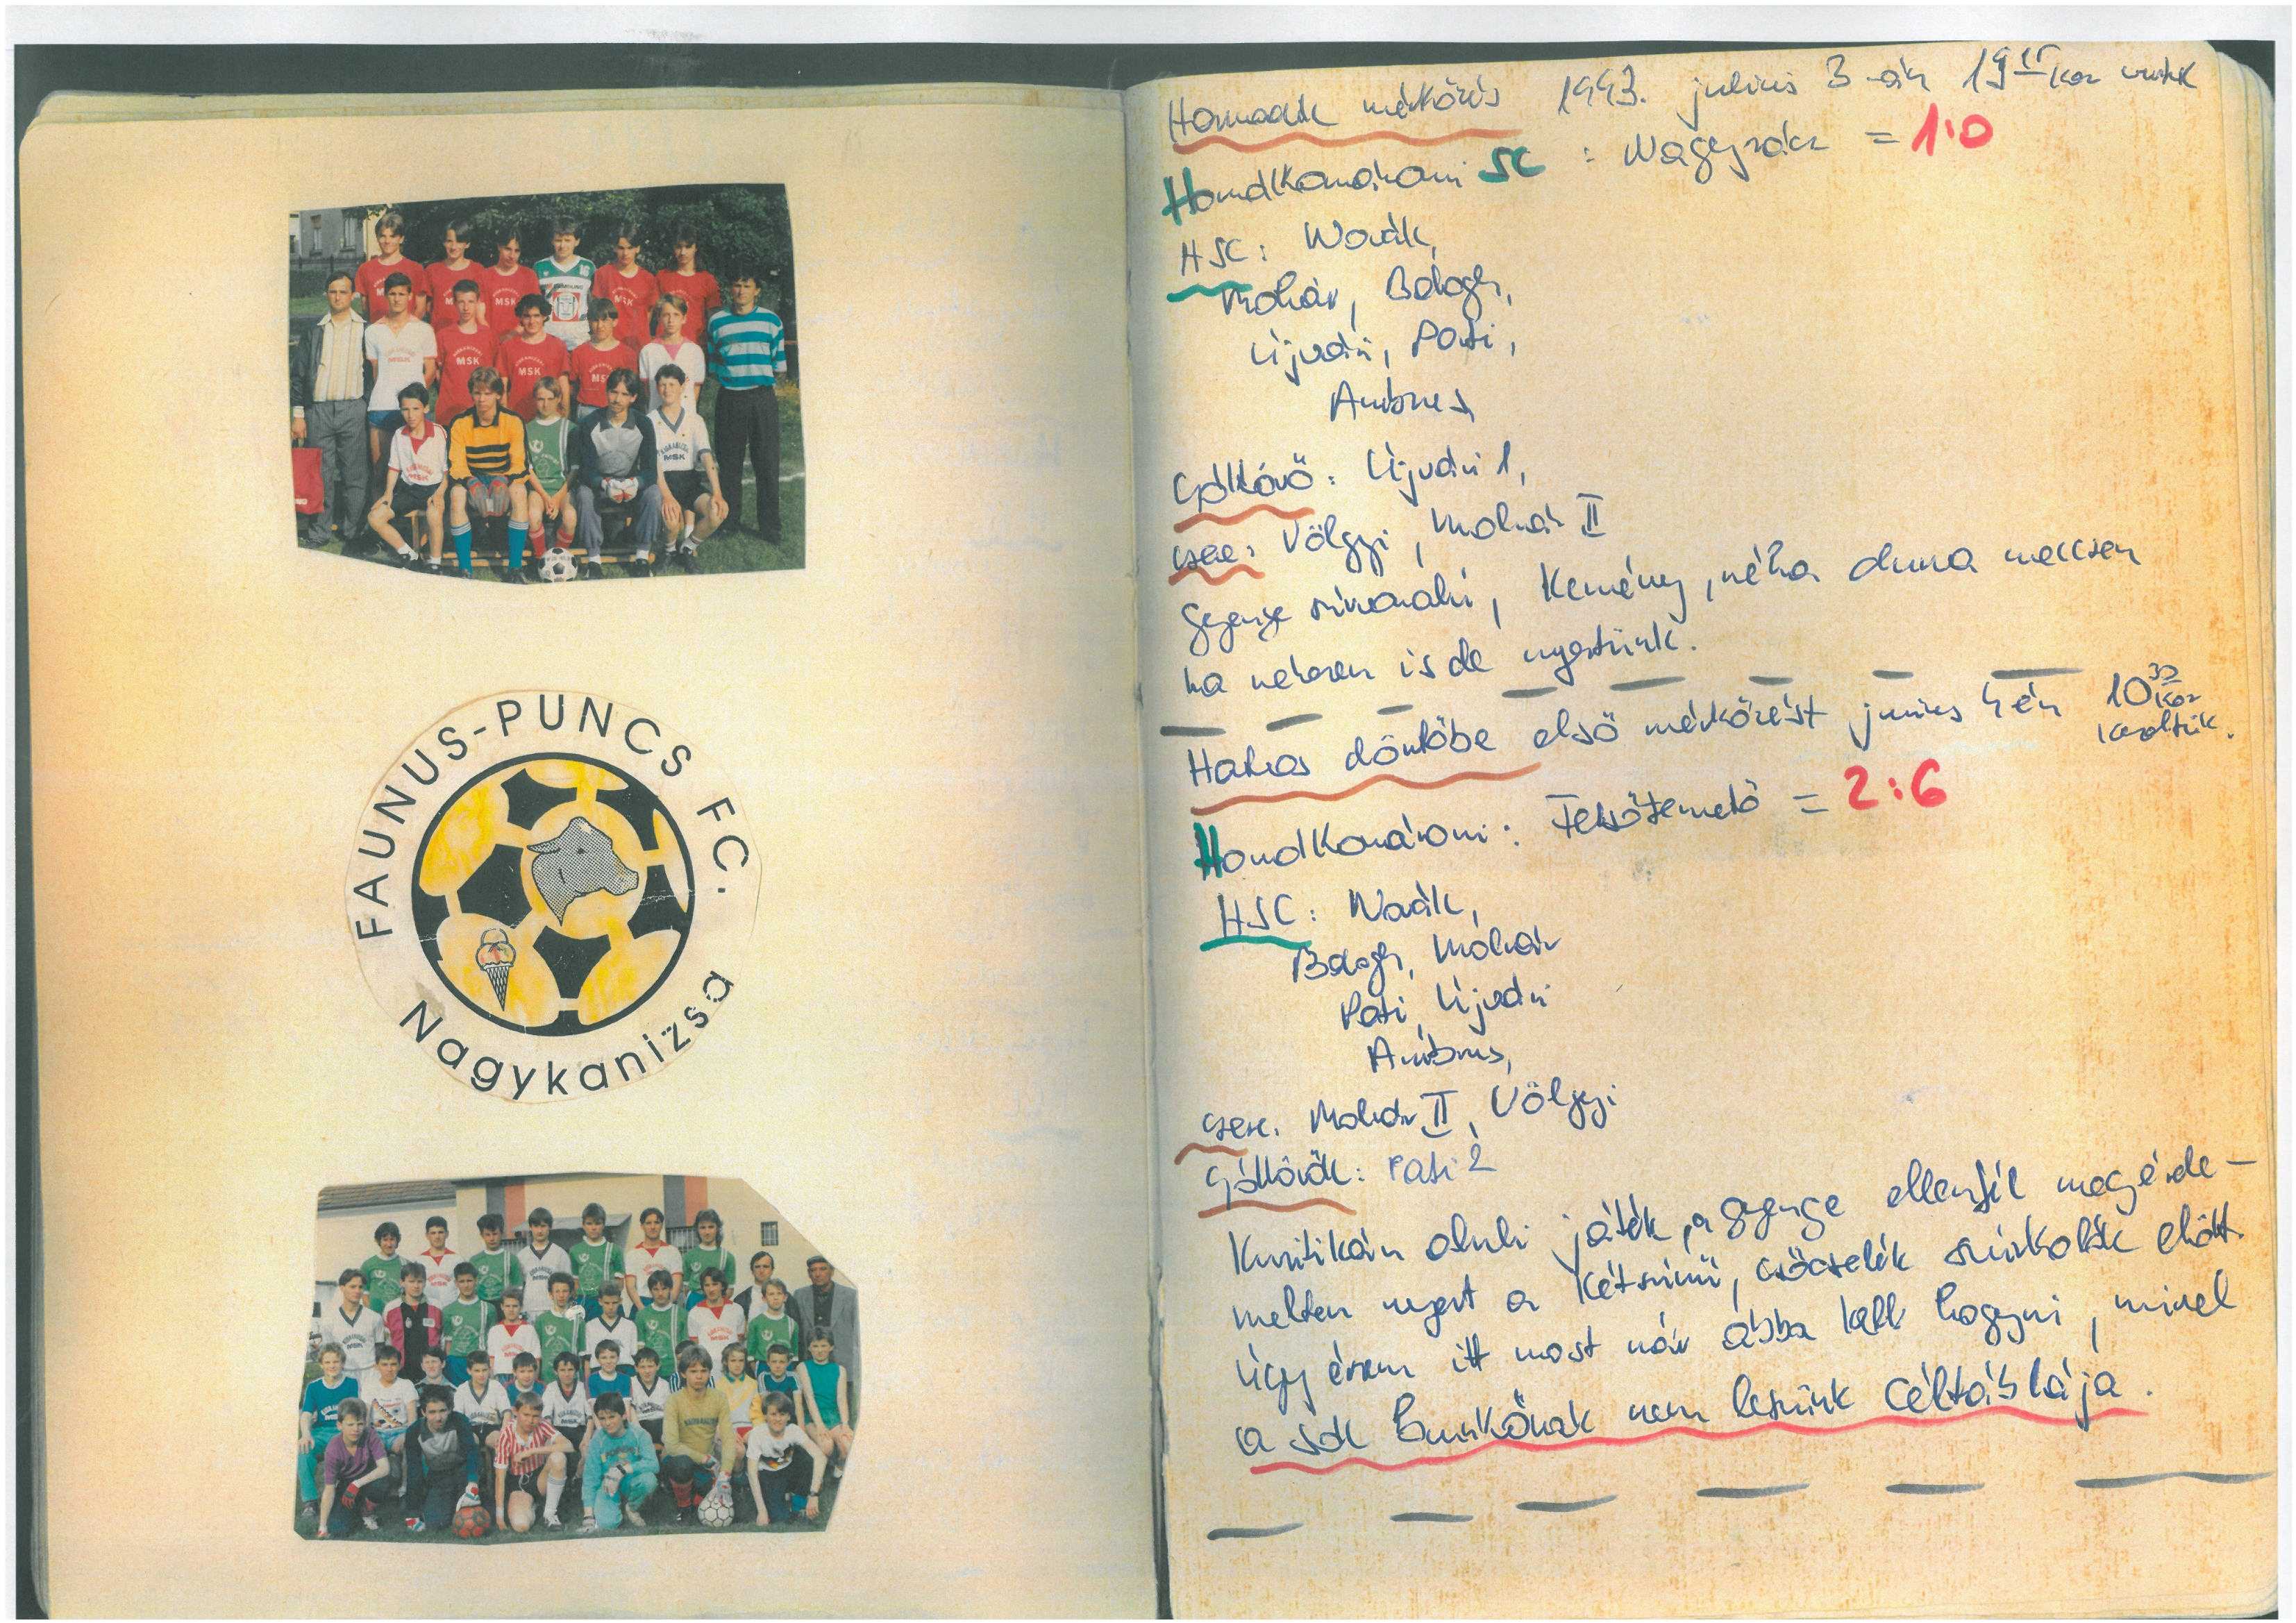 MSK
MSK
MSK
MSK
MSK
MSK
FAUNUS-PUNCS FC.
Nagykanizsa
Harmadik mérkőzés 1993. julius 3-án 19 kor
Homokkomáromi SC : Nagyrécse = 1:0
HSC: Novák,
Molnár, Balogh,
Ujvári, Pati,
Ambrus
Góllövő: Ujvári 1,
csere: Völgyi, Molnár II
Gyenge szinvonalú, Kemény, néha durva meccsen
ha nehezen is de nyertünk.
Hatos döntőbe első mérkőzést 4 én 10 30 kor
kezdtük.
Homokkomáromi: Felsőtemető = 2:6
HSC: Novák,
Balogh, Molnár
Pati, Ujvári
Ambrus,
csere. Molnár II, Völgyi
Góllövők: Pati 2
Kritikán aluli játék, a gyenge ellenfél megérde-
melten nyert a Kétszinü, csőcselék szurkolók előtt.
Úgy érzem itt most már abba kell hagyni, mivel
a sok Bunkónak nem leszünk Céltáblája.